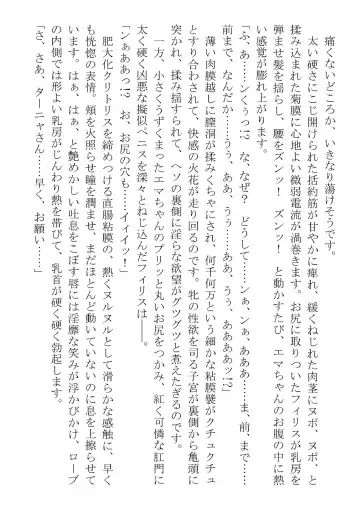 痛くないどころか、いきなり蕩けそうです。
太い硬さにこじ開けられた括約筋が甘やかに痺れ、緩くねじれた肉茎にヌボ、ヌボ、と
揉み込まれた菊膜に心地よい微弱電流が渦巻きます。お尻に取りついたフィリスが乳房を
弾ませ髪を揺らし、腰をズンッ！　ズンッ！　と動かすたび、エマちゃんのお腹の中に熱
い感覚が膨れ上がります。
「ふ、あ……ンくぅっ!?　な、なぜ？　どうして……ンぅ、んぁ、あああ……ま、前、まで…
…前まで、なんだか……うぅ、ああ、うぅ……ああ、うぅ、ああああッ!?」
薄い肉膜越しに膣洞が揉みくちゃにされ、何千何万という細かな粘膜襞がクチュクチュ
とすり合わされて、快感の火花が走り回るのです。牝の性欲を司る子宮が裏側から亀頭に
突かれ、揉み揺すられて、ヘソの裏側に淫らな欲望がグツグツと煮えたぎるのです。
一方、小さくうずくまったエマちゃんのプリッと丸いお尻をつかみ、紅く可憐な肛門に
太く硬く凶悪な擬似ペニスを深々とねじ込んだフィリスは――。
「ンぁああっ!?　お、お尻の穴も……イイィッ！」
肥大化クリトリスを締めつける直腸粘膜の、熱くヌルヌルとして滑らかな感触に、早く
も恍惚の表情。頬を火照らせ瞳を潤ませ、まだほとんど動いていないのに息を上擦らせて
います。はぁ、はぁ、と艶めかしい吐息をこぼす唇には淫靡な笑みが浮びかけ、ローブ
の内側では形よい乳房がじんわり熱を帯びて、乳首が硬く硬く勃起します。
「さ、さあ、ターニャさん……早く、お願い……」